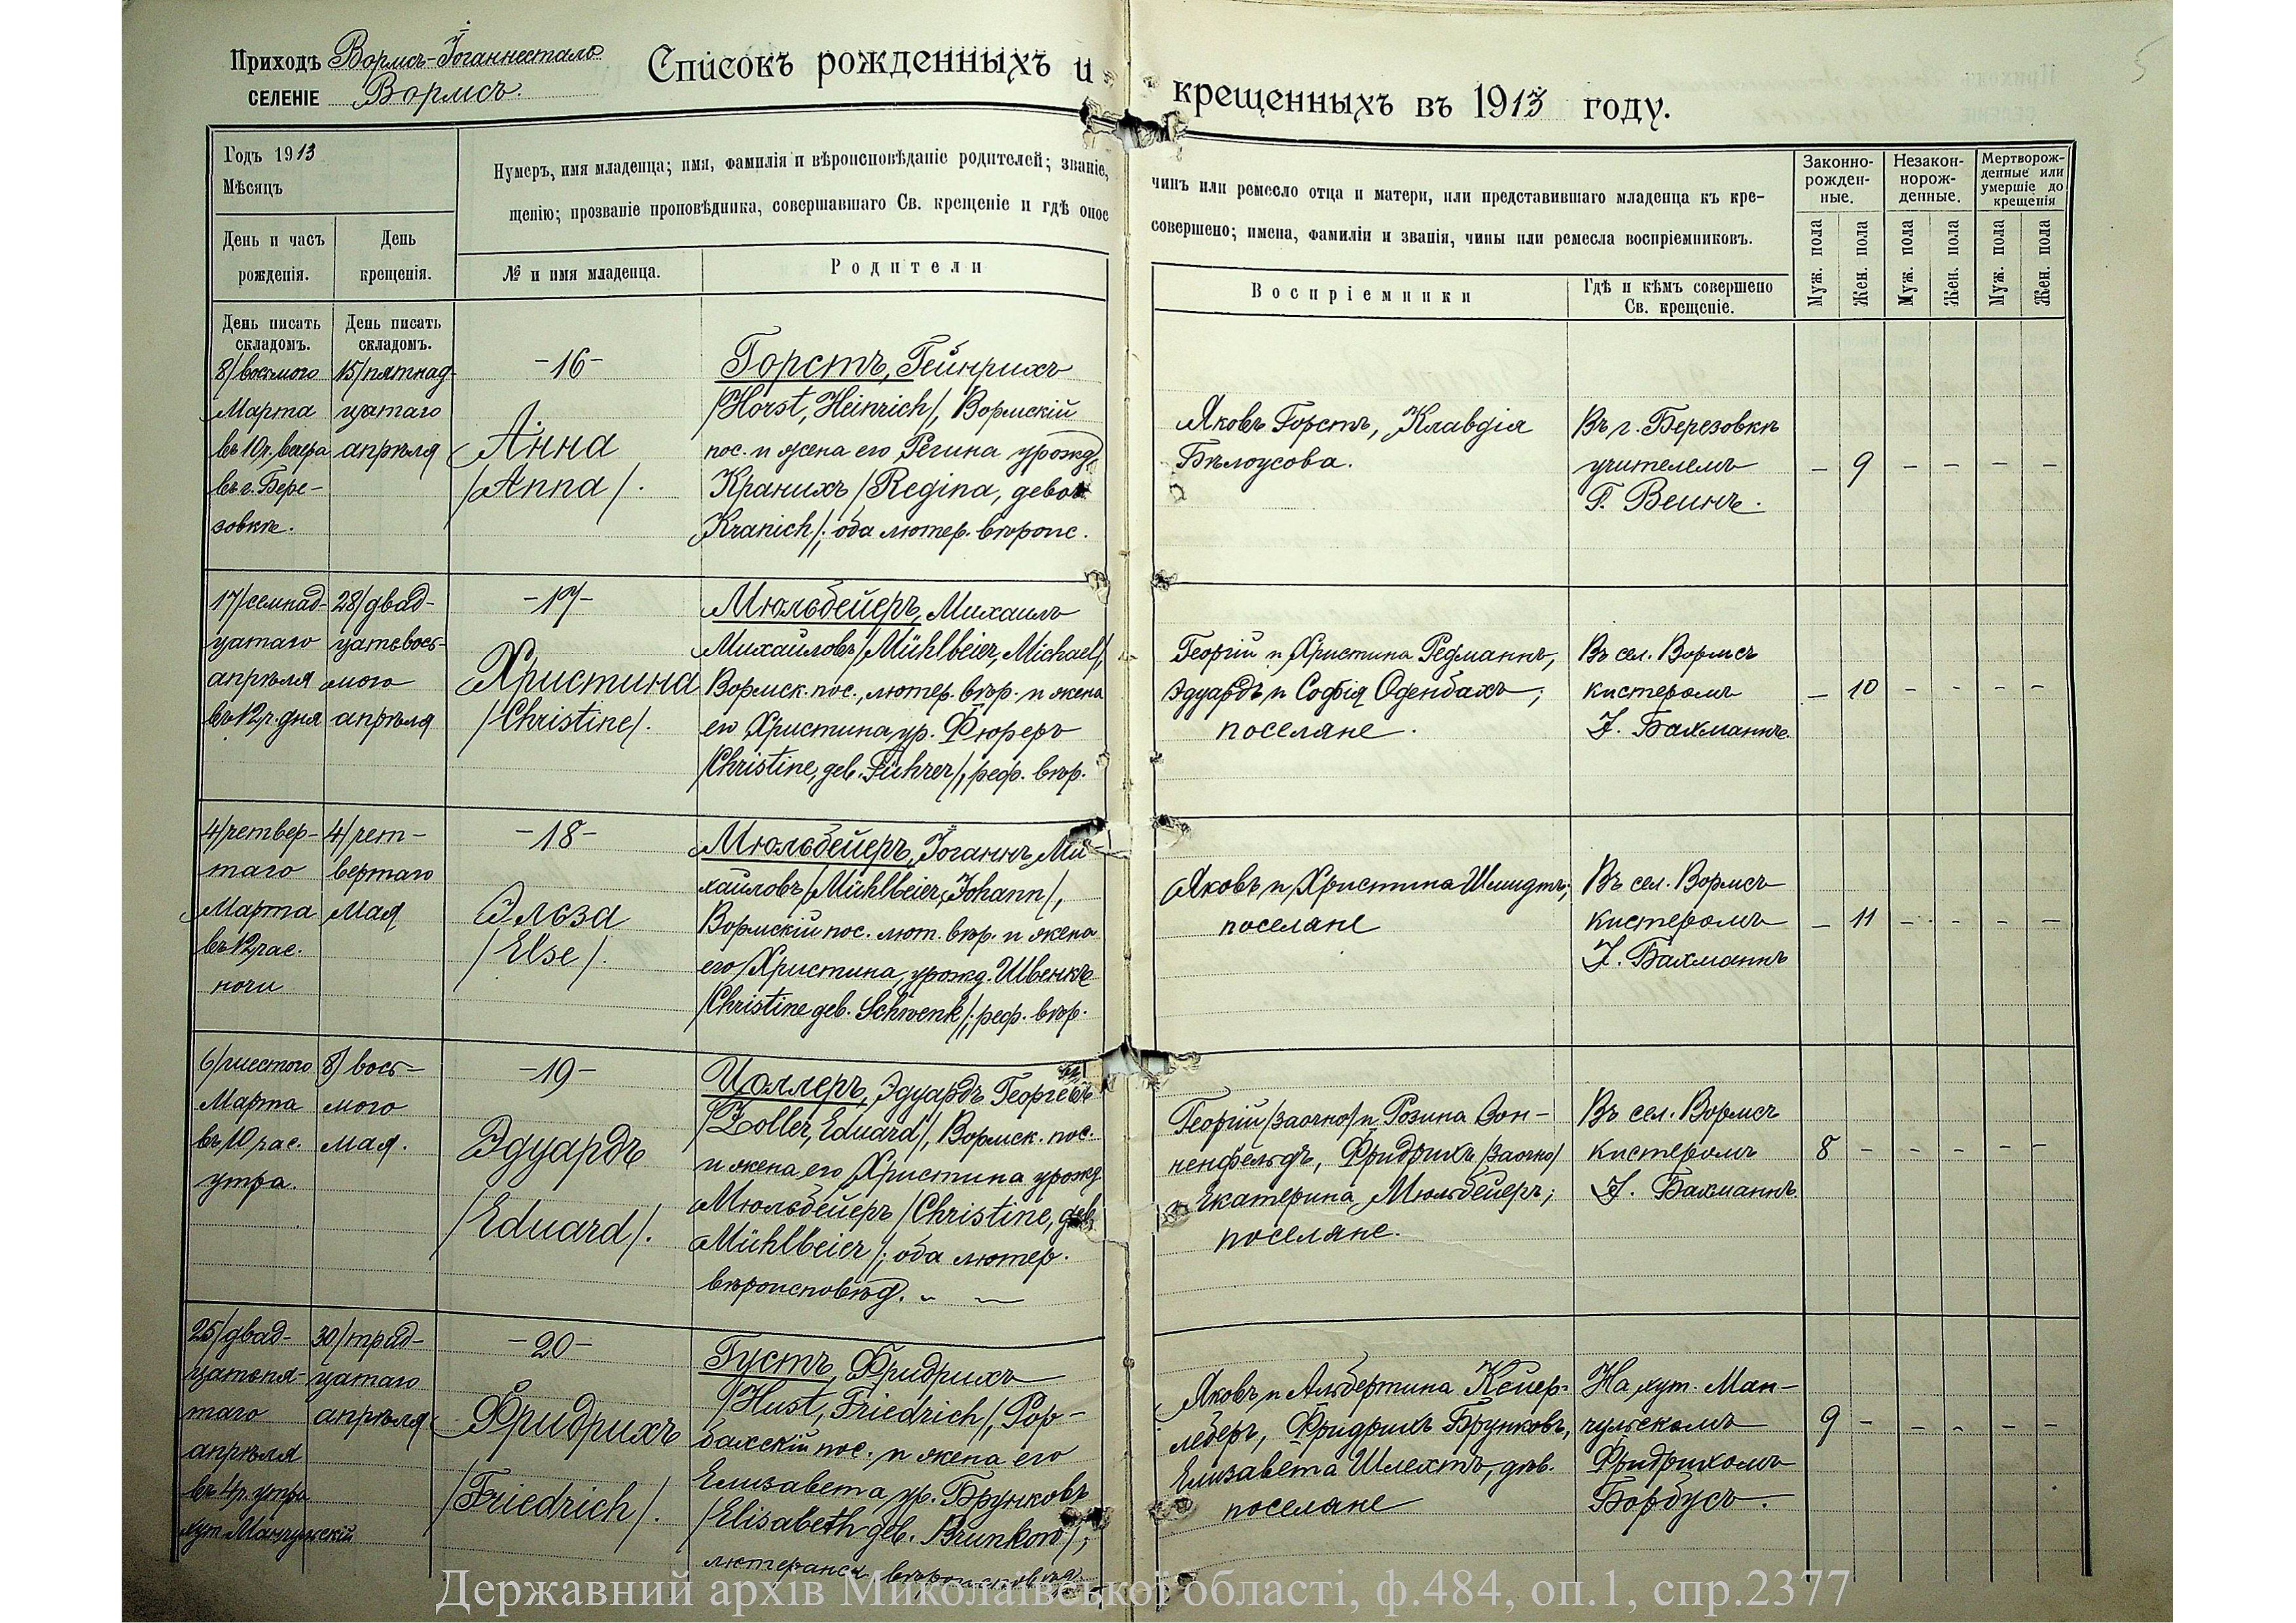 Приходъ Вормсъ-Іоганнесталь
селеніе Вормсъ.
Списокъ рожденныхъ и крещенныхъ въ 1913 году.
5
Годъ 1913
Мѣсяцъ
Нумеръ, имя младенца; имя, фамилія и вѣроисповѣданіе родителей; званіе, чинъ или ремесло отца и матери, или представившаго младенца къ кре-
щенію; прозваніе проповѣдника, совершавшаго Св. крещеніе и гдѣ оное совершено; имена, фамиліи и званія, чины или ремесла воспріемниковъ.
Законно-
рожден-
ные.
Незакон-
норож-
денные.
Мертворож-
денные или
умершіе до
крещенія
День и часъ
рожденія.
День
крещенія.
№ и имя младенца.
Родители
Воспріемники
Гдѣ и кѣмъ совершено
Св. крещеніе.
Муж. пола
Жен. пола
Муж. пола
Жен. пола
Муж. пола
Жен. пола
День писать
складомъ.
День писать
складомъ.
8/восьмого
Марта
въ 10 ч. вечера
въ г. Бере-
зовкѣ.
15/пятнад-
цатаго
апрѣля
-16-
Анна
/Anna/.
Горстъ, Гейнрихъ
/Horst, Heinrich/, Вормскій
пос. и жена его Регина урожд.
Кранихъ /Regina, geb.
Kranich/; оба лютер. вѣроис.
Яковъ Горстъ, Клавдія
Бѣлоусова.
Въ г. Березовкѣ
учителемъ
Г. Веинъ.
– 9 – – – –
17/семнад-
цатаго
апрѣля
въ 12 ч. дня
28/двад-
цатьвось-
мого
апрѣля
-17-
Христина
/Christine/.
Мюльбейеръ, Михаилъ
Михайловъ /Mühlbeier, Michael/,
Вормск. пос., лютер. вѣр. и жена
его Христина, ур. Фюреръ
/Christine, geb. Führer/, реф. вѣр.
Георгій и Христина Редманнъ,
Эдуардъ и Софія Оденбахъ;
поселяне.
Въ сел. Вормсъ
кистеромъ
І. Бахманнъ.
– 10 – – – –
4/четвер-
таго
Марта
въ 12 час.
ночи
4/чет-
вертаго
Мая
-18-
Эльза
/Else/.
Мюльбейеръ, Іоганнъ Ми-
хайловъ /Mühlbeier, Johann/,
Вормскій пос. лют. вѣр. и жена
его Христина, урожд. Швенкъ
/Christine geb. Schwenk/; реф. вѣр.
Яковъ и Христина Шмидтъ;
поселяне
Въ сел. Вормсъ
кистеромъ
І. Бахманнъ
– 11 – – – –
6/шестого
Марта
въ 10 час.
утра.
8/вось-
мого
мая.
-19-
Эдуардъ
/Eduard/.
Цоллеръ, Эдуардъ
/Zoller, Eduard/, Вормск. пос.
и жена его Христина урожд
Мюльбейеръ /Christine, geb.
Mühlbeier/; оба лютер.
вѣроисповѣд.
Георгій /заочно/ и Розина Зон-
ненфельдъ, Фридрихъ /заочно/
и Екатерина Мюльбейеръ;
поселяне.
Въ сел. Вормсъ
кистеромъ
І. Бахманнъ.
8 – – – – –
25/двад-
цатьпя-
таго
апрѣля
въ 4 ч. утра
хут.
30/трид-
цатаго
апрѣля
-20-
Фридрихъ
/Friedrich/.
Густъ, Фридрихъ
/Hust, Friedrich/, Рор-
бахскій пос. и жена его
Елизавета ур. Брунковъ
/Elisabeth geb. Brunkow/;
лютеранск. вѣроисповѣд.
Яковъ и Альбертина Кейер-
леберъ, Фридрихъ Брунковъ,
Елизавета Шлехтъ, дѣв.
поселяне
На хут. Ман-
чульскомъ
Фридрихомъ
Борбусъ.
9 – – – – –
Державний архів Миколаївської області, ф.484, оп.1, спр.2377